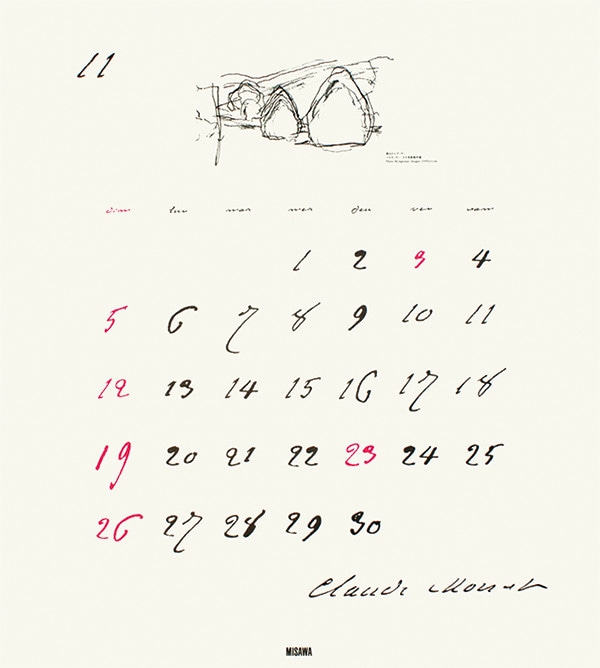 11
dim lun mar mer jeu ven sam
1 2 3 4
5 6 7 8 9 10 11
12 13 14 15 16 17 18
19 20 21 22 23 24 25
26 27 28 29 30
Claude Monet
MISAWA